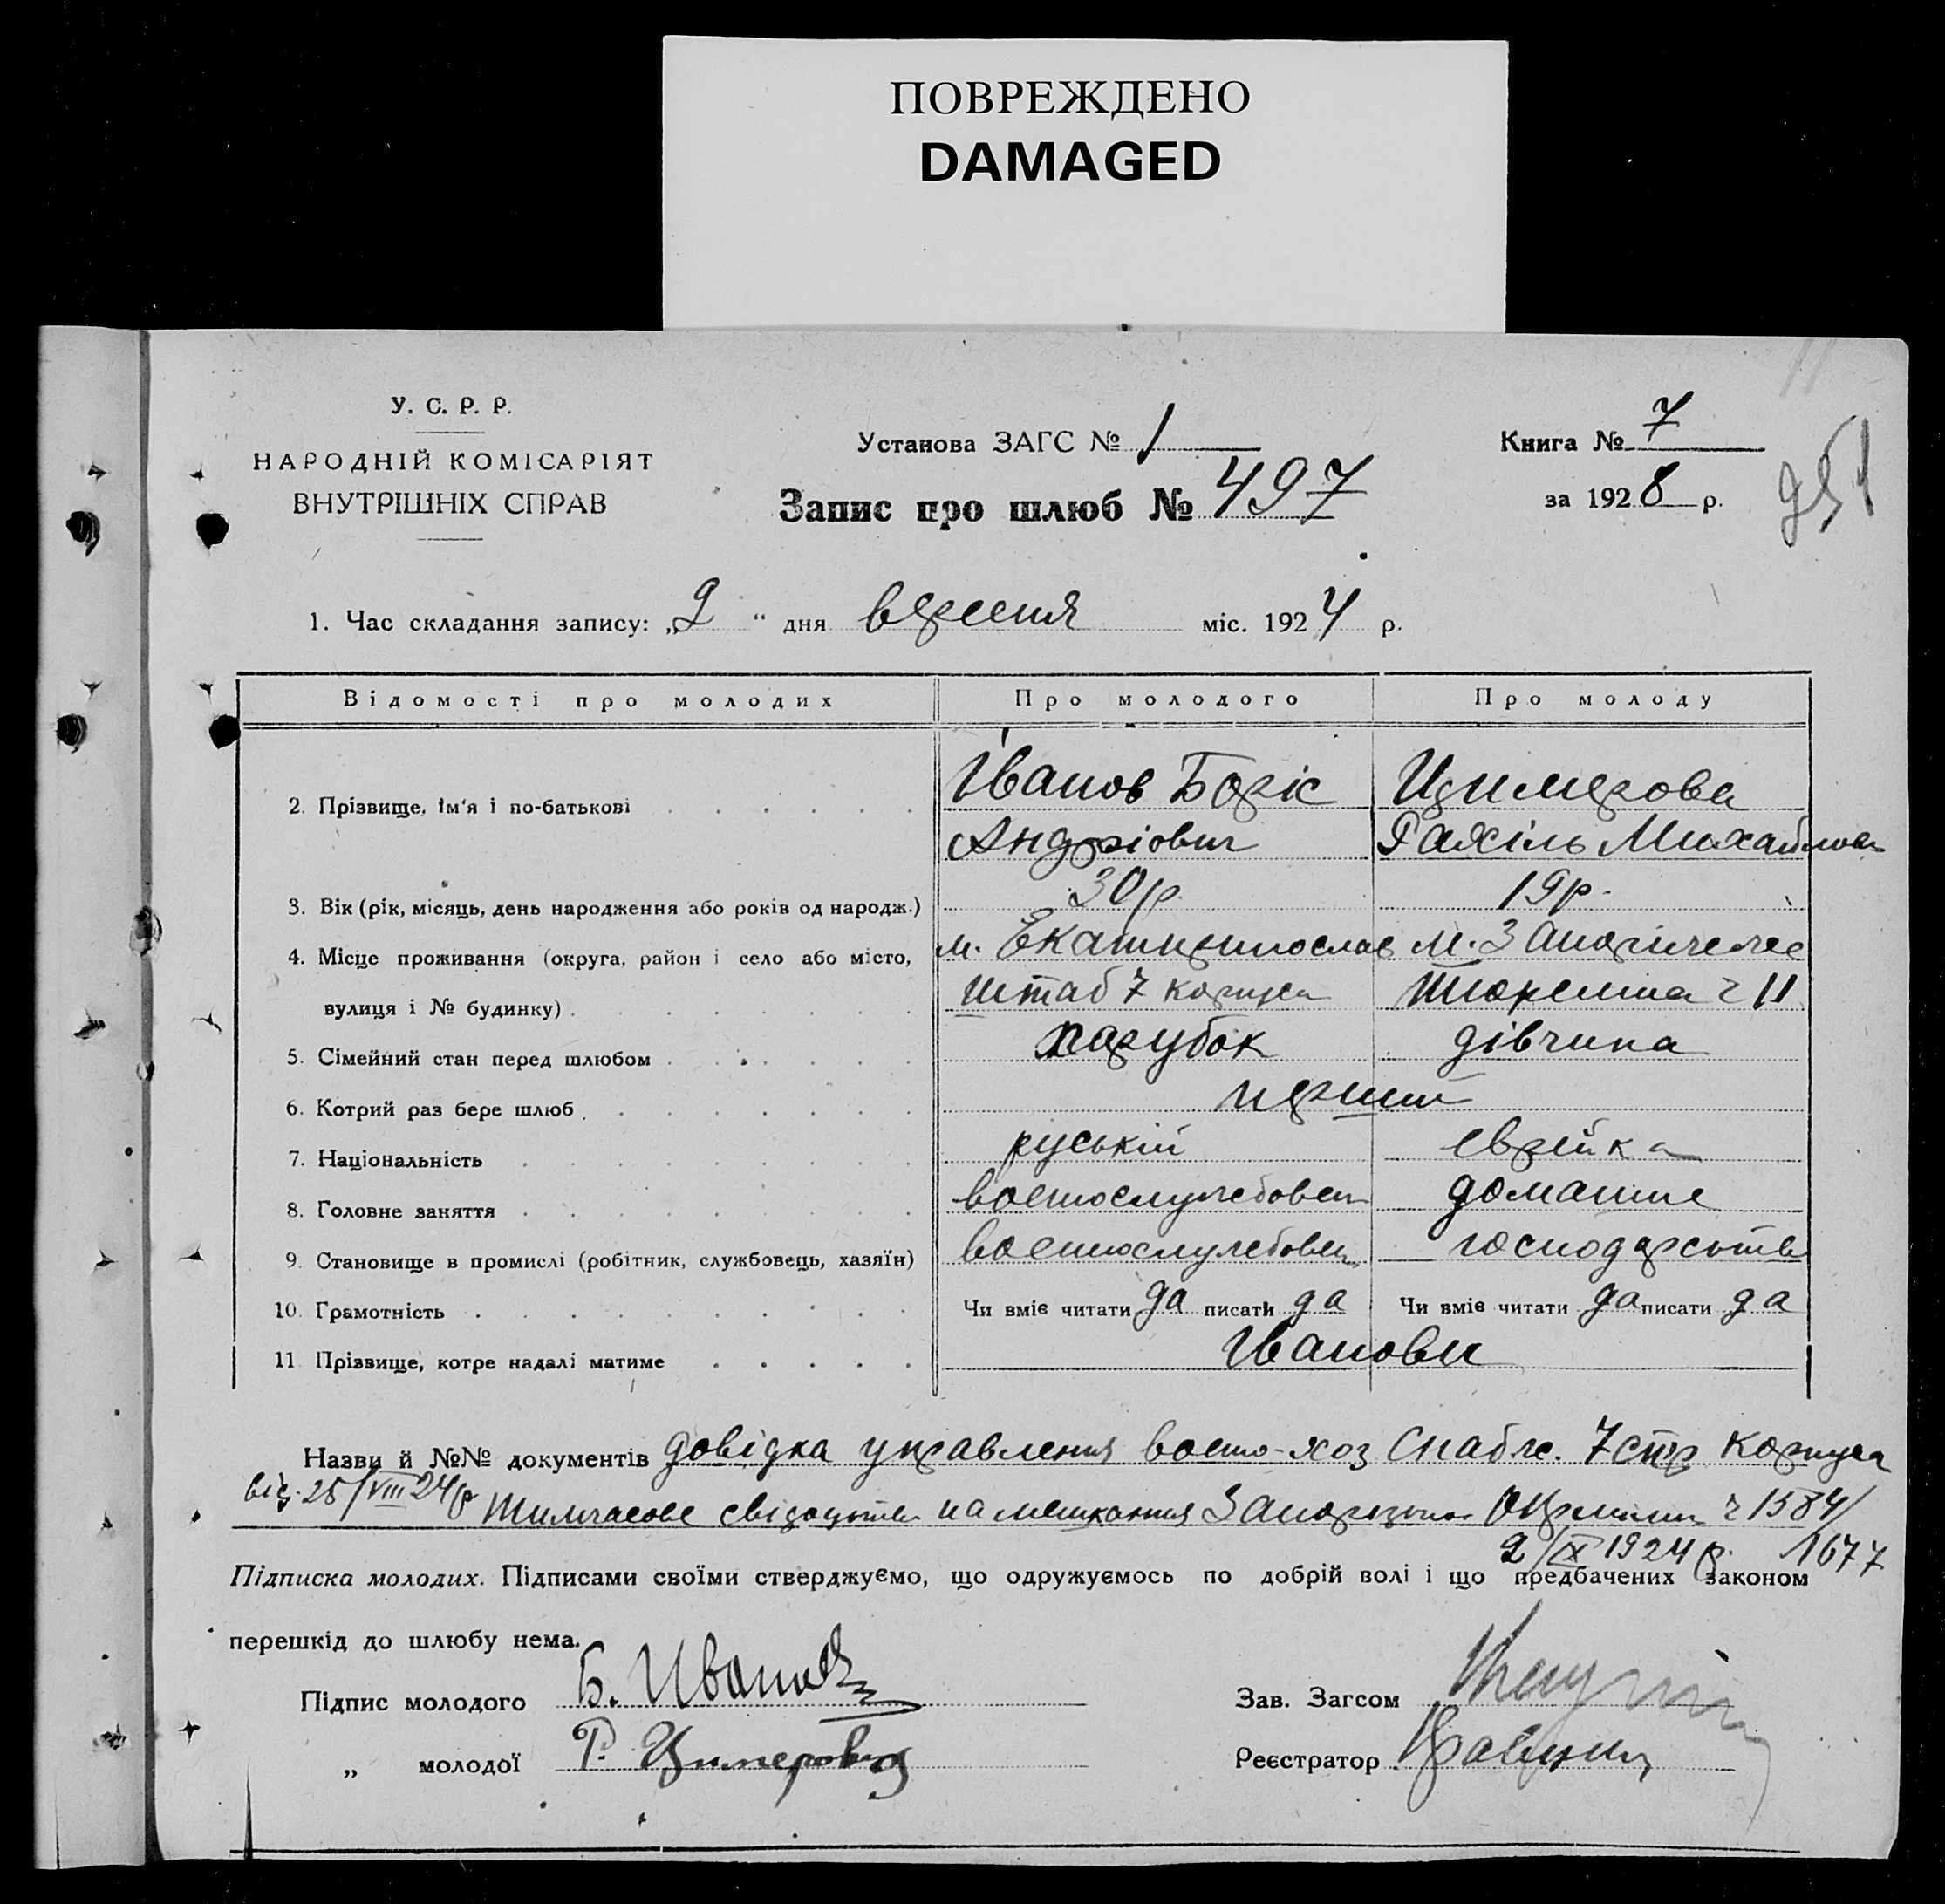 ПОВРЕЖДЕНО
DAMAGED
У. С. Р. Р.
НАРОДНІЙ КОМІСАРІЯТ
ВНУТРІШНІХ СПРАВ
Установа ЗАГС № 1
Запис про шлюб № 497
Книга № 7
за 1928 р.
951
1. Час складання запису: „2“ дня вересня міс. 1924 р.
Відомості про молодих Про молодого Про молоду
2. Прізвище, ім'я і по-батькові Іванов Боріс Цимерова
Андріович Рахіль Михайлова
3. Вік (рік, місяць, день народження або років од народж.) 30 р. 19 р.
4. Місце проживання (округа, район і село або місто, м. Екатиринослав м.
вулиця і № будинку) штаб 7 корпуса Тюремна ч 11
5. Сімейний стан перед шлюбом парубок дівчина
6. Котрий раз бере шлюб перший
7. Національність руській еврейка
8. Головне заняття воєнослужбовец домашне
9. Становище в промислі (робітник, службовець, хазяїн) воєнослужбовец господарство
10. Грамотність Чи вміє читати да писати да Чи вміє читати да писати да
11. Прізвище, котре надалі матиме Іванови
Назви й №№ документів довідка управления воєно-хоз снабж. 7 стр корпуса
від 25/VIII 24 р Тимчасове свідоцтво на мешкання ч 1584/
2/IX 1924 р. 1677
Підписка молодих. Підписами своїми стверджуємо, що одружуємось по добрій волі і що предбачених законом
перешкід до шлюбу нема.
Підпис молодого Б. Иванов
Зав. Загсом
„ молодої Р. Цимерова
Реєстратор